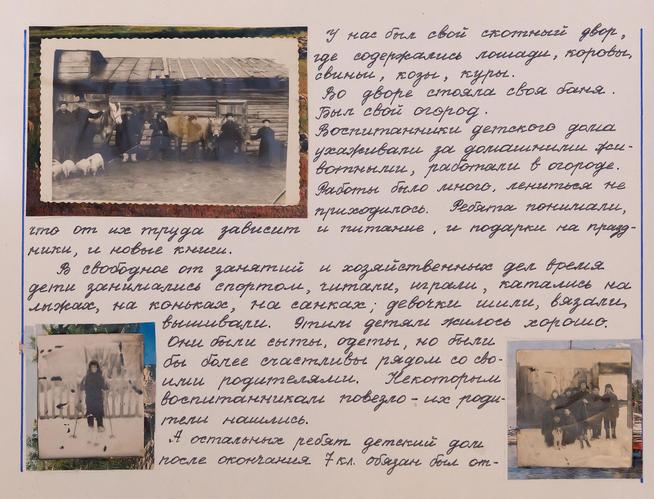 У нас был свой скотный двор,
где содержались лошади, коровы,
свиньи, козы, куры.
Во дворе стояла своя баня.
Был свой огород.
Воспитанники детского дома
ухаживали за домашними жи-
вотными, работали в огороде.
Работы было много, лениться не
приходилось. Ребята понимали,
что от их труда зависит и питание, и подарки на празд-
ники, и новые книги.
В свободное от занятий и хозяйственных дел время
дети занимались спортом, читали, играли, катались на
лыжах, на коньках, на санках; девочки шили, вязали,
вышивали. Этим детям жилось хорошо.
Они были сыты, одеты, но были
бы более счастливы рядом со сво-
ими родителями. Некоторым
воспитанникам повезло - их роди-
тели нашлись.
А остальных ребят детский дом
после окончания 7 кл. обязан был от-